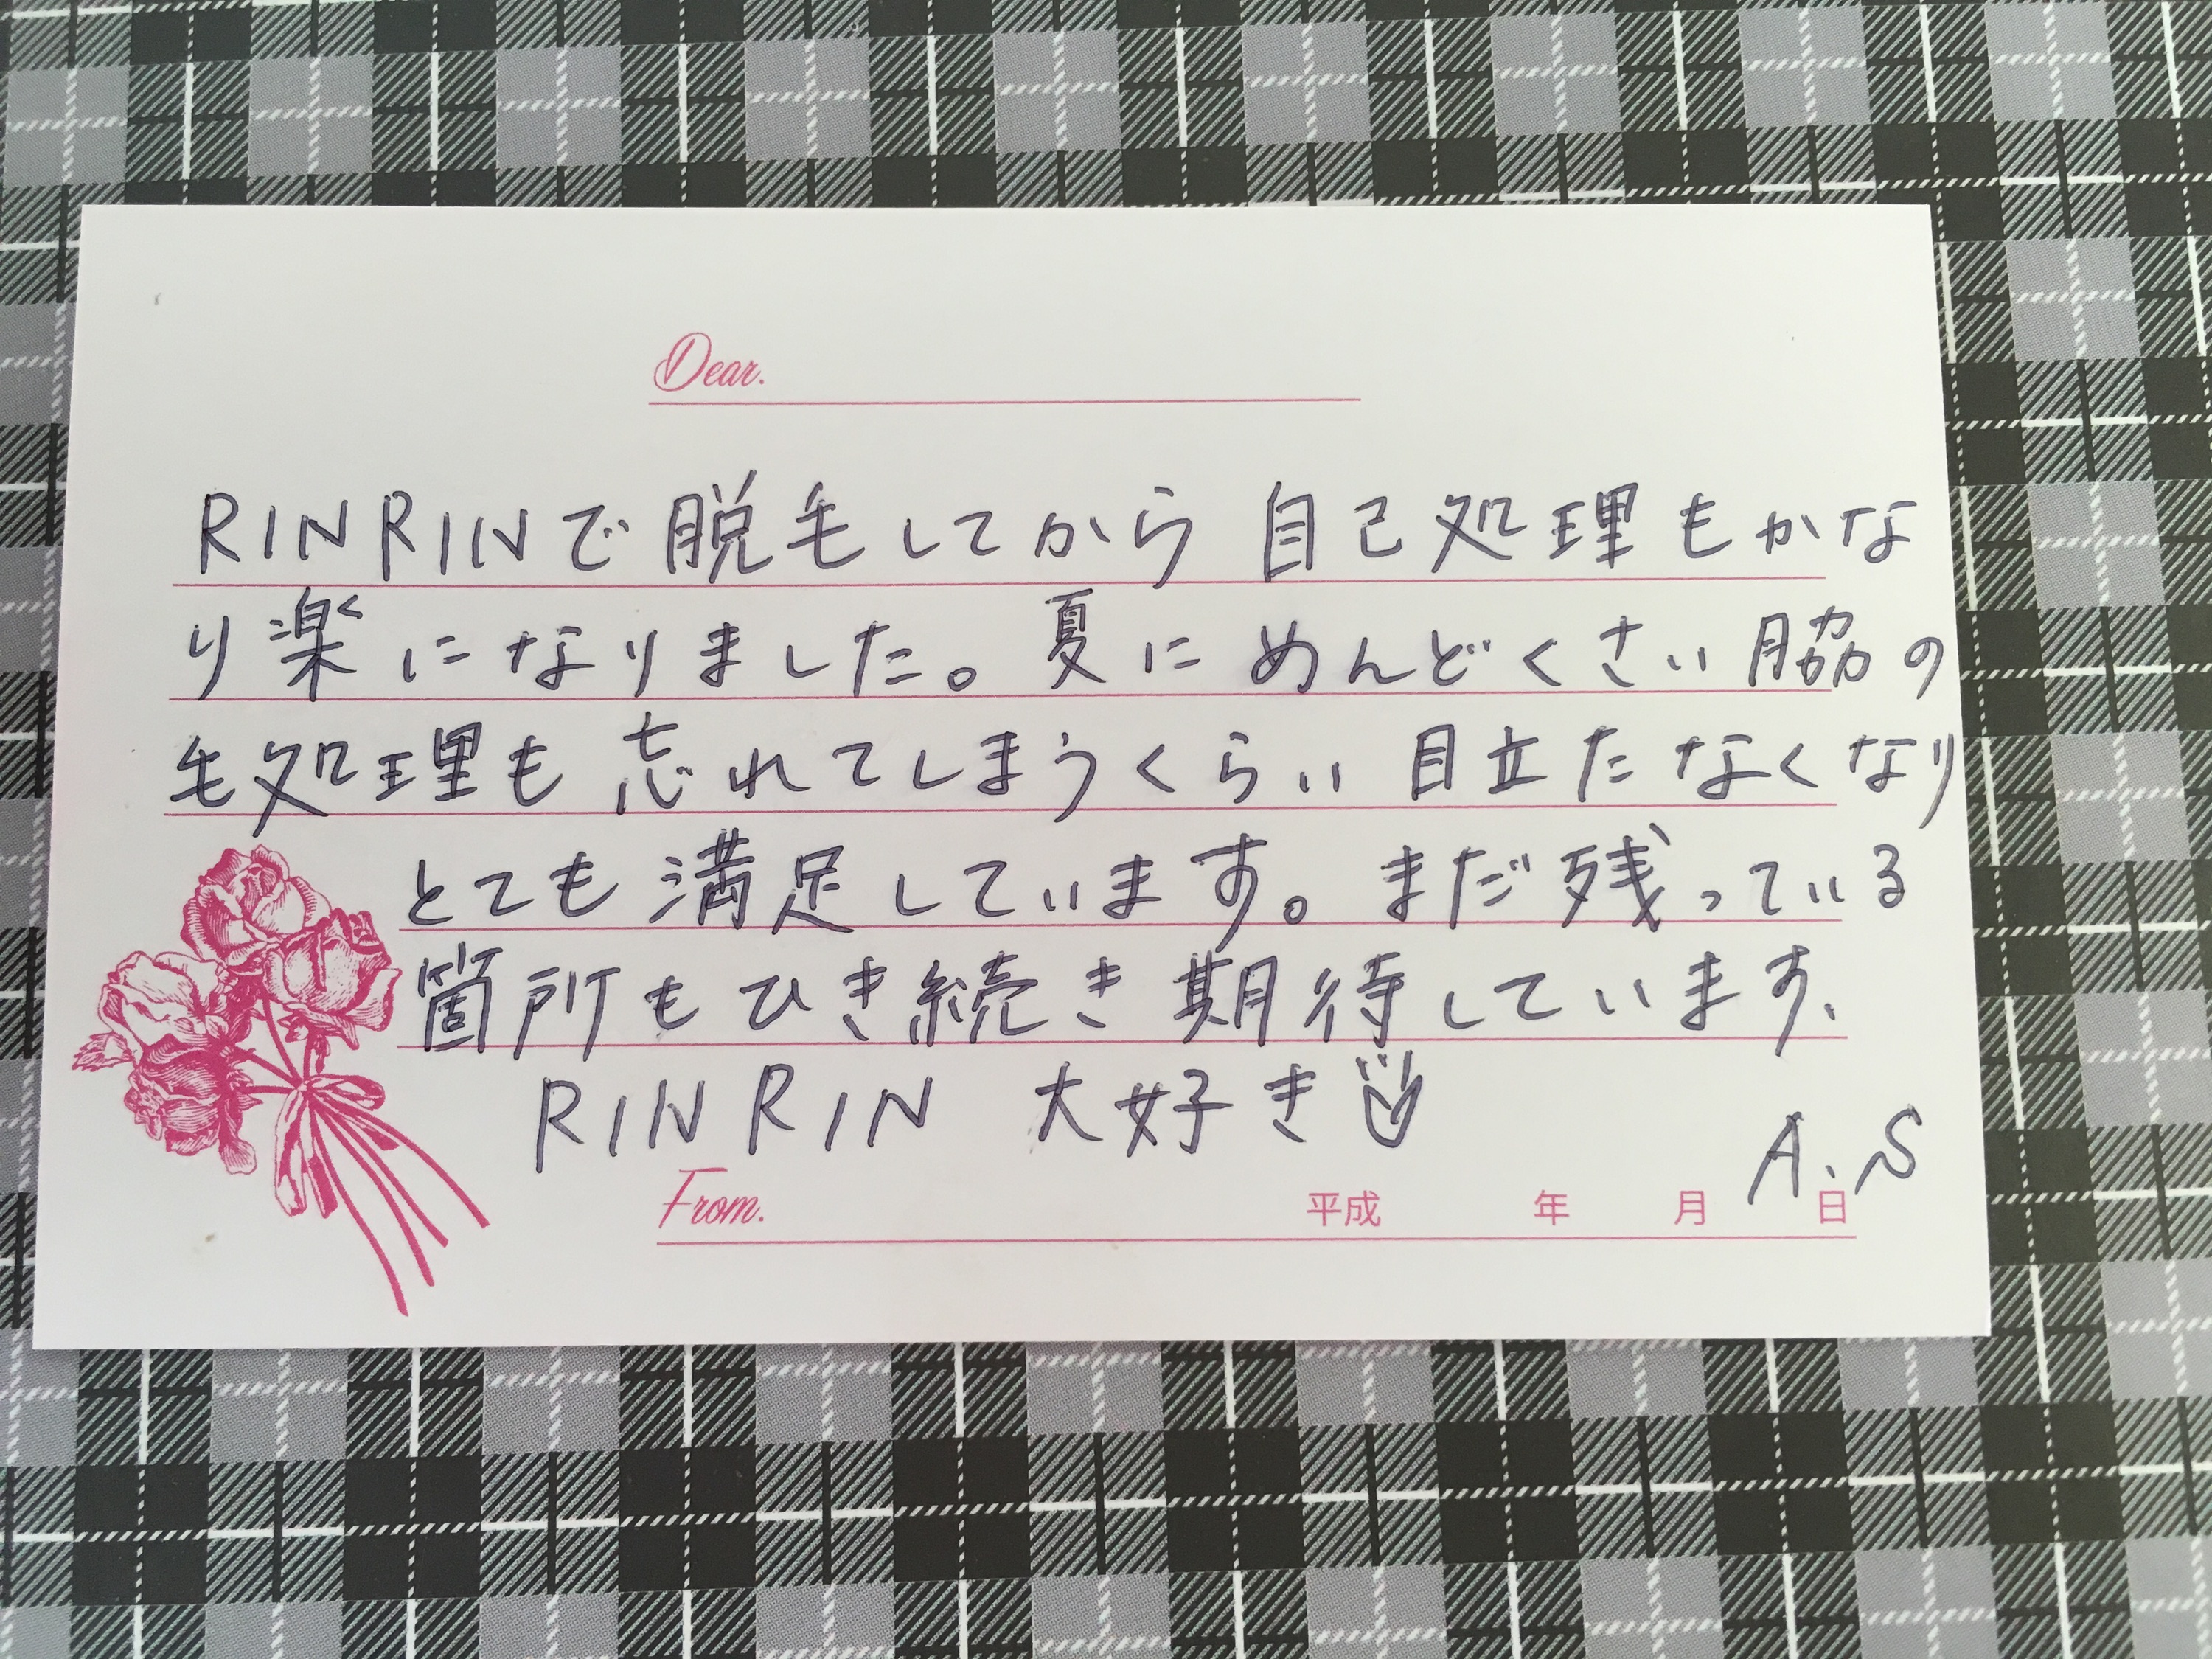 Dear.
RINRINで脱毛してから 自己処理もかな
り楽になりました。夏にめんどくさい脇の
毛処理も忘れてしまうくらい目立たなくなり
とても満足しています。まだ残っている
箇所もひき続き期待しています、
RINRIN 大好き
A.S
From. 平成 年 月 日